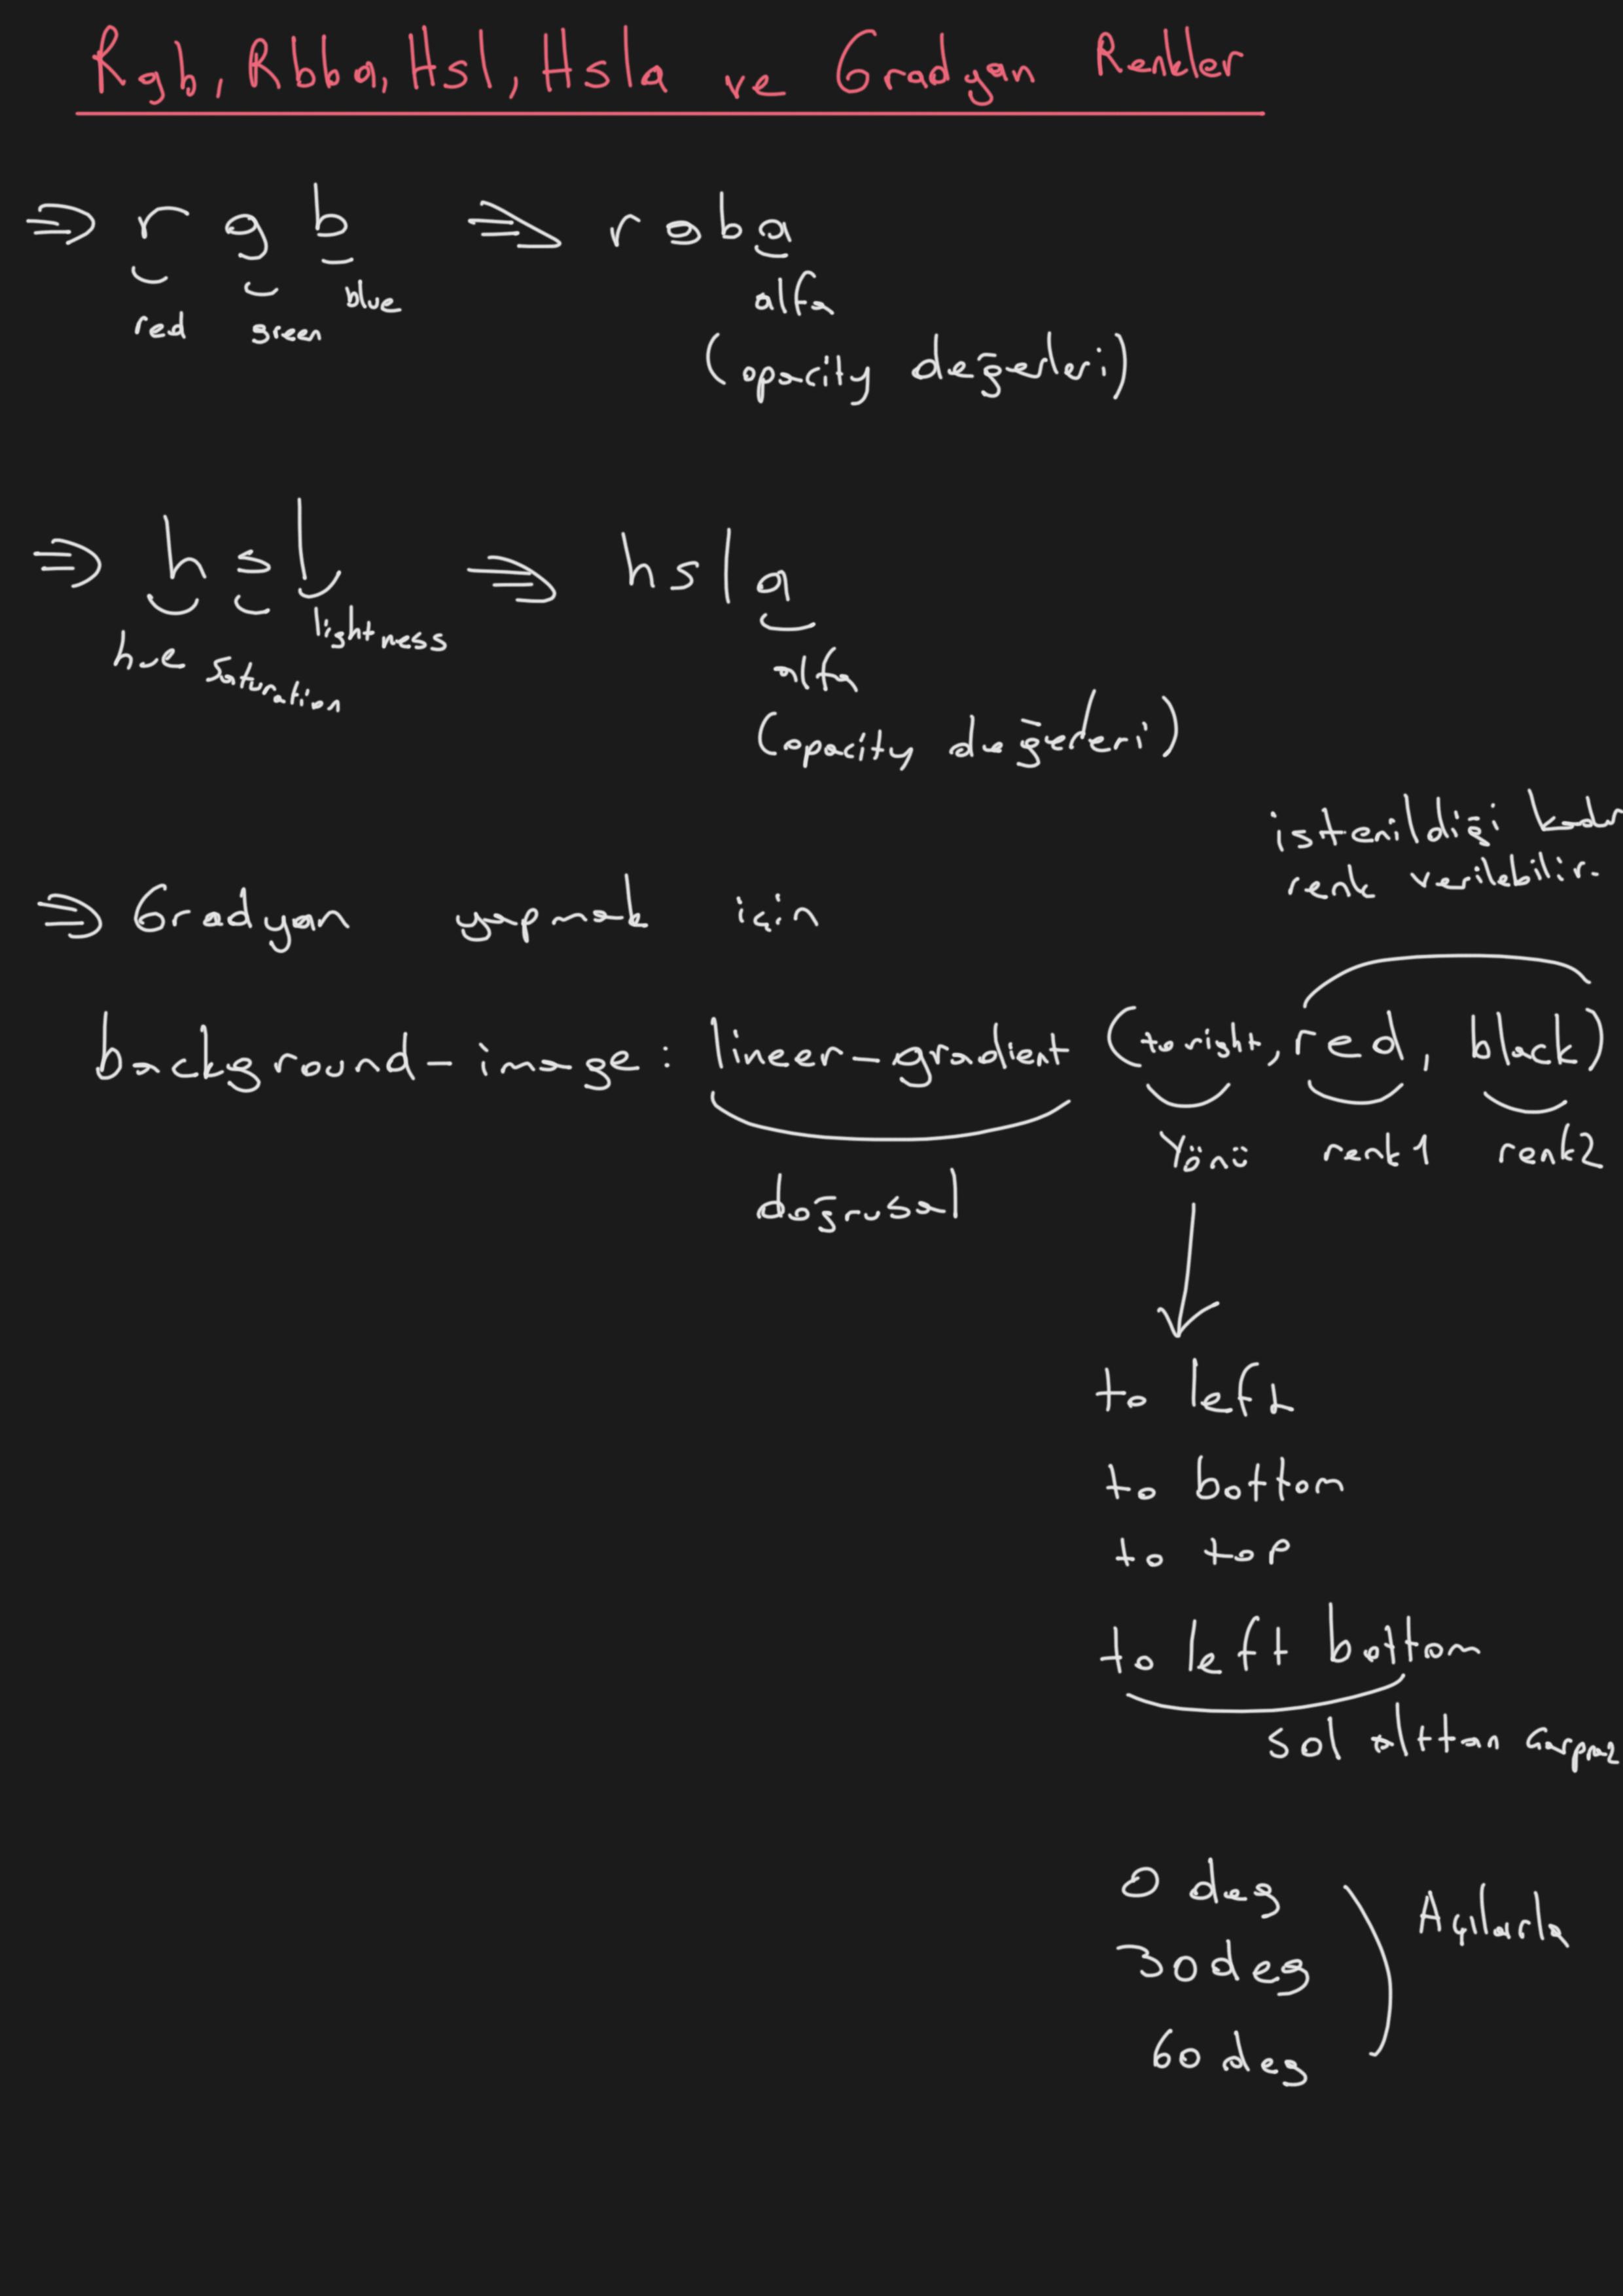 Rgb, Rbba, Hsl, Hsla ve Gradyan Renkler
⇒ r g b ⇒ rgba
red green blue
alfa
(opacity değerleri)
⇒ h s l ⇒ hsla
hue saturation lightness
alfa
(opacity değerleri)
istenildiği kadar
renk verilebilir.
⇒ Gradyan yapmak için
background-image: lineer-gradient (to right, red, black)
Yönü renk1 renk2
doğrusal
to left
to bottom
to top
to left bottom
sol alttan çarpraz
0 deg
30deg
60 deg
Açılarla